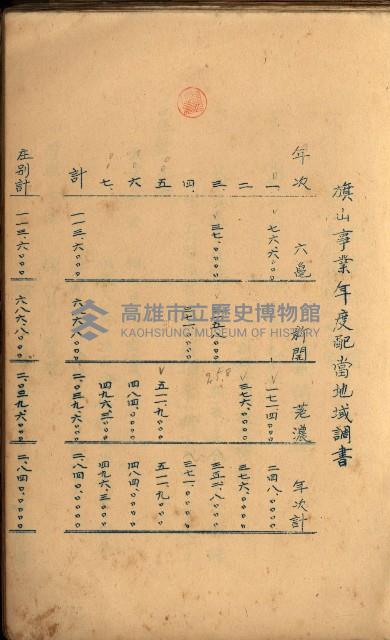 旗山事業年度配當地域調書
年次 六龜 新開 荖濃 年次計
一、 七六.六〇〇〇 一七一.四〇〇〇 二四八.〇〇〇〇
二、 三七六.〇〇〇〇 三七六.〇〇〇〇
三、 三七.〇〇〇〇 三一五.八〇〇〇 三五二.八〇〇〇
四、 三七一.〇〇〇〇 三七一.〇〇〇〇
五、 五一一.九〇〇〇 五一一.九〇〇〇
六、 四八四.〇〇〇〇 四八四.〇〇〇〇
七、 四九六.三〇〇〇 四九六.三〇〇〇
計 一一三.六〇〇〇 六八六.八〇〇〇 二.〇三九.六〇〇〇 二.八四〇.〇〇〇〇
庄別計 一一三.六〇〇〇 六八六.八〇〇〇 二.〇三九.六〇〇〇 二.八四〇.〇〇〇〇
258
高雄市立歷史博物館
KAOHSIUNG MUSEUM OF HISTORY